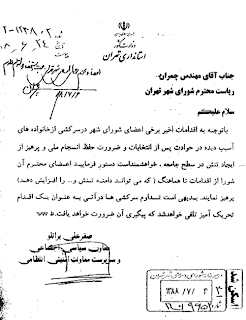 وزارت کشور
استانداری تهران
جناب آقای مهندس چمران
ریاست محترم شورای شهر تهران
سلام علیکم
باتوجه به اقدامات اخیر برخی اعضای شورای شهر درسرکشی ازخانواده های
آسیب دیده در حوادث پس از انتخابات و ضرورت حفظ انسجام ملی و پرهیز از
ایجاد تنش در سطح جامعه ، خواهشمنداست دستور فرمایید اعضای محترم آن
شورا از اقدامات نا هماهنگ ( که می توانند دامنه تنش و... را افزایش دهد)
پرهیز نمایند. بدیهی است تداوم سرکشی ها درآتی به عنوان یک اقدام
تحریک آمیز تلقی خواهدشد که پیگیری آن ضرورت خواهد یافت.
صفرعلی براتلو
معاون سیاسی اجتماعی
و سرپرست معاونت امنیتی انتظامی
۱۳۸۸/۷/۲